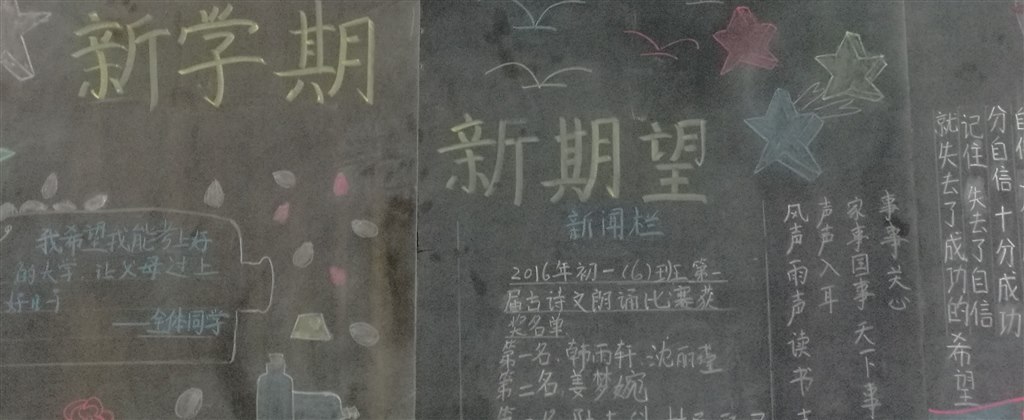 新学期
新期望
我希望我能考上好
的大学,让父母过上
好日子
——全体同学
新闻栏
2016年初一(6)班第一
届古诗文朗诵比赛获
奖名单
第一名:韩雨轩、沈丽
第二名:姜梦婉
风声雨声读书
声声入耳
家事国事天下事
事事关心
分自信 十分成功
记住 失去了自信
就失去了成功的希望